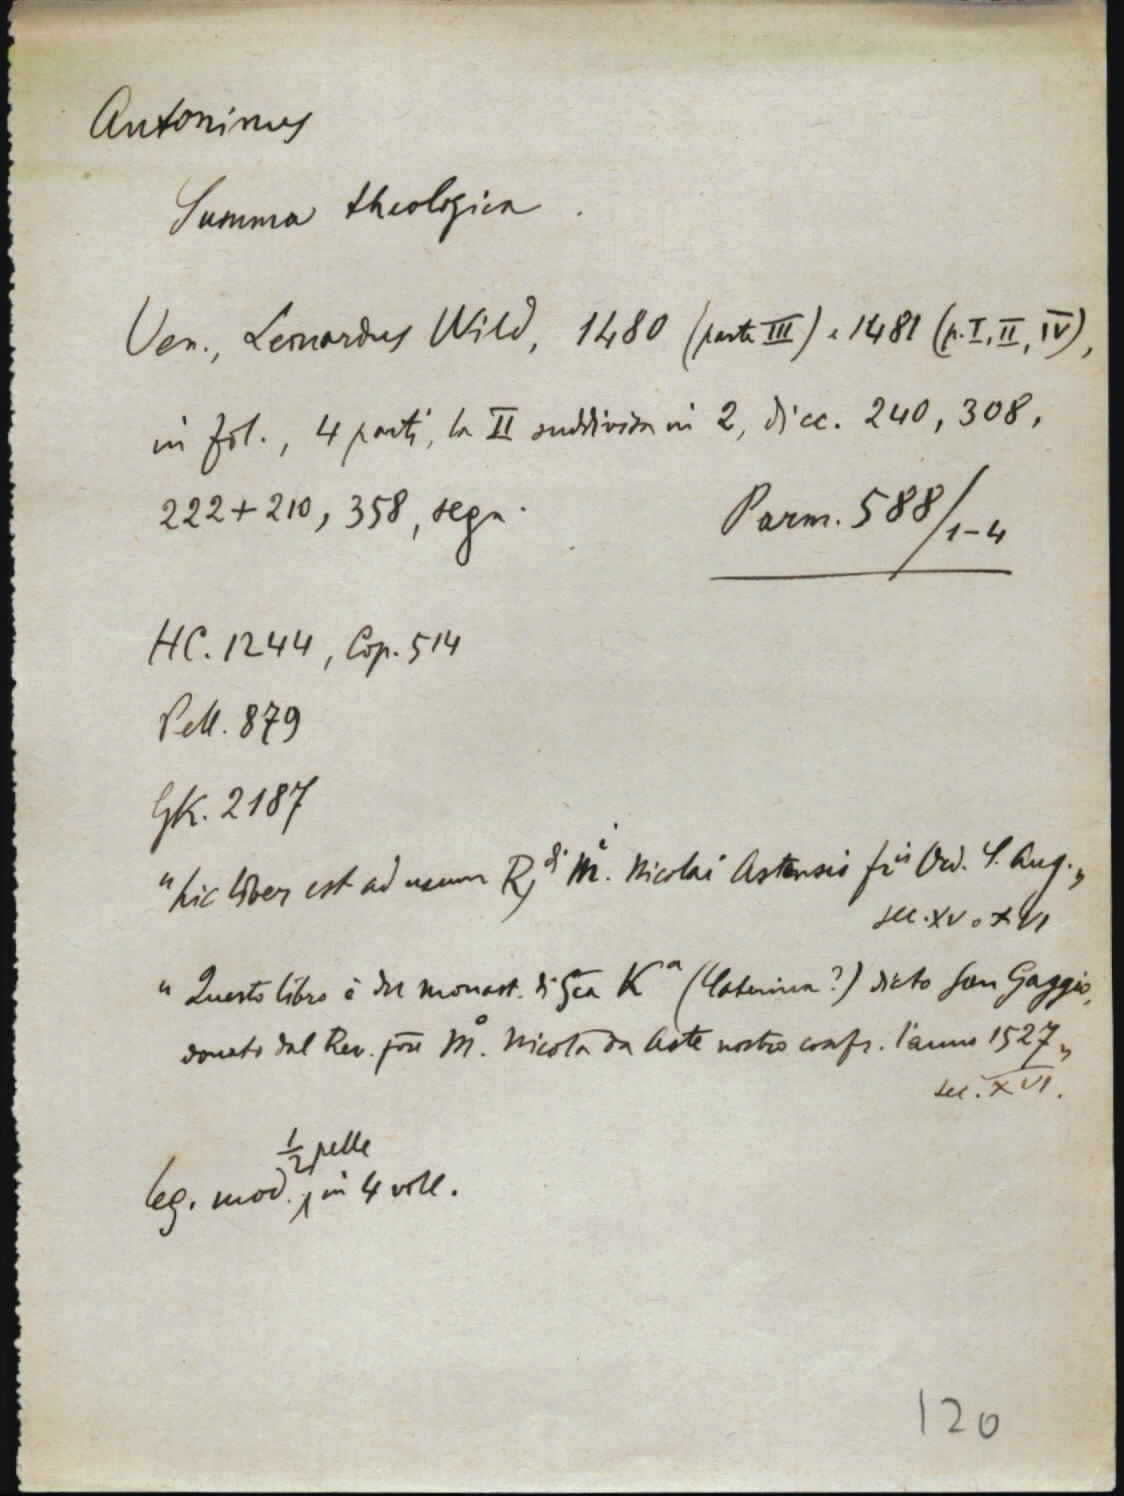 Antoninus
Summa theologica.
Ven., Leonardus Wild, 1480 (parte III) e 1481 (p. I, II, IV),
in fol., 4 parti, la II suddivisa in 2, di cc. 240, 308,
222+210, 358, segn.
Parm. 588/1-4
HC. 1244, Cop. 514
Pell. 879
GK. 2187
"hic liber est ad usum R.di Mi. Nicolai Astensis fris Ord. S. Aug."
sec. XV o XVI
"Questo libro è del monast. di Sca Ka (Caterina?) dicto San Gaggio,
donato dal Rev. Mo. Nicola da Aste nostro confr. l'anno 1527"
sec. XVI.
½ pelle
leg. mod. in 4 voll.
120